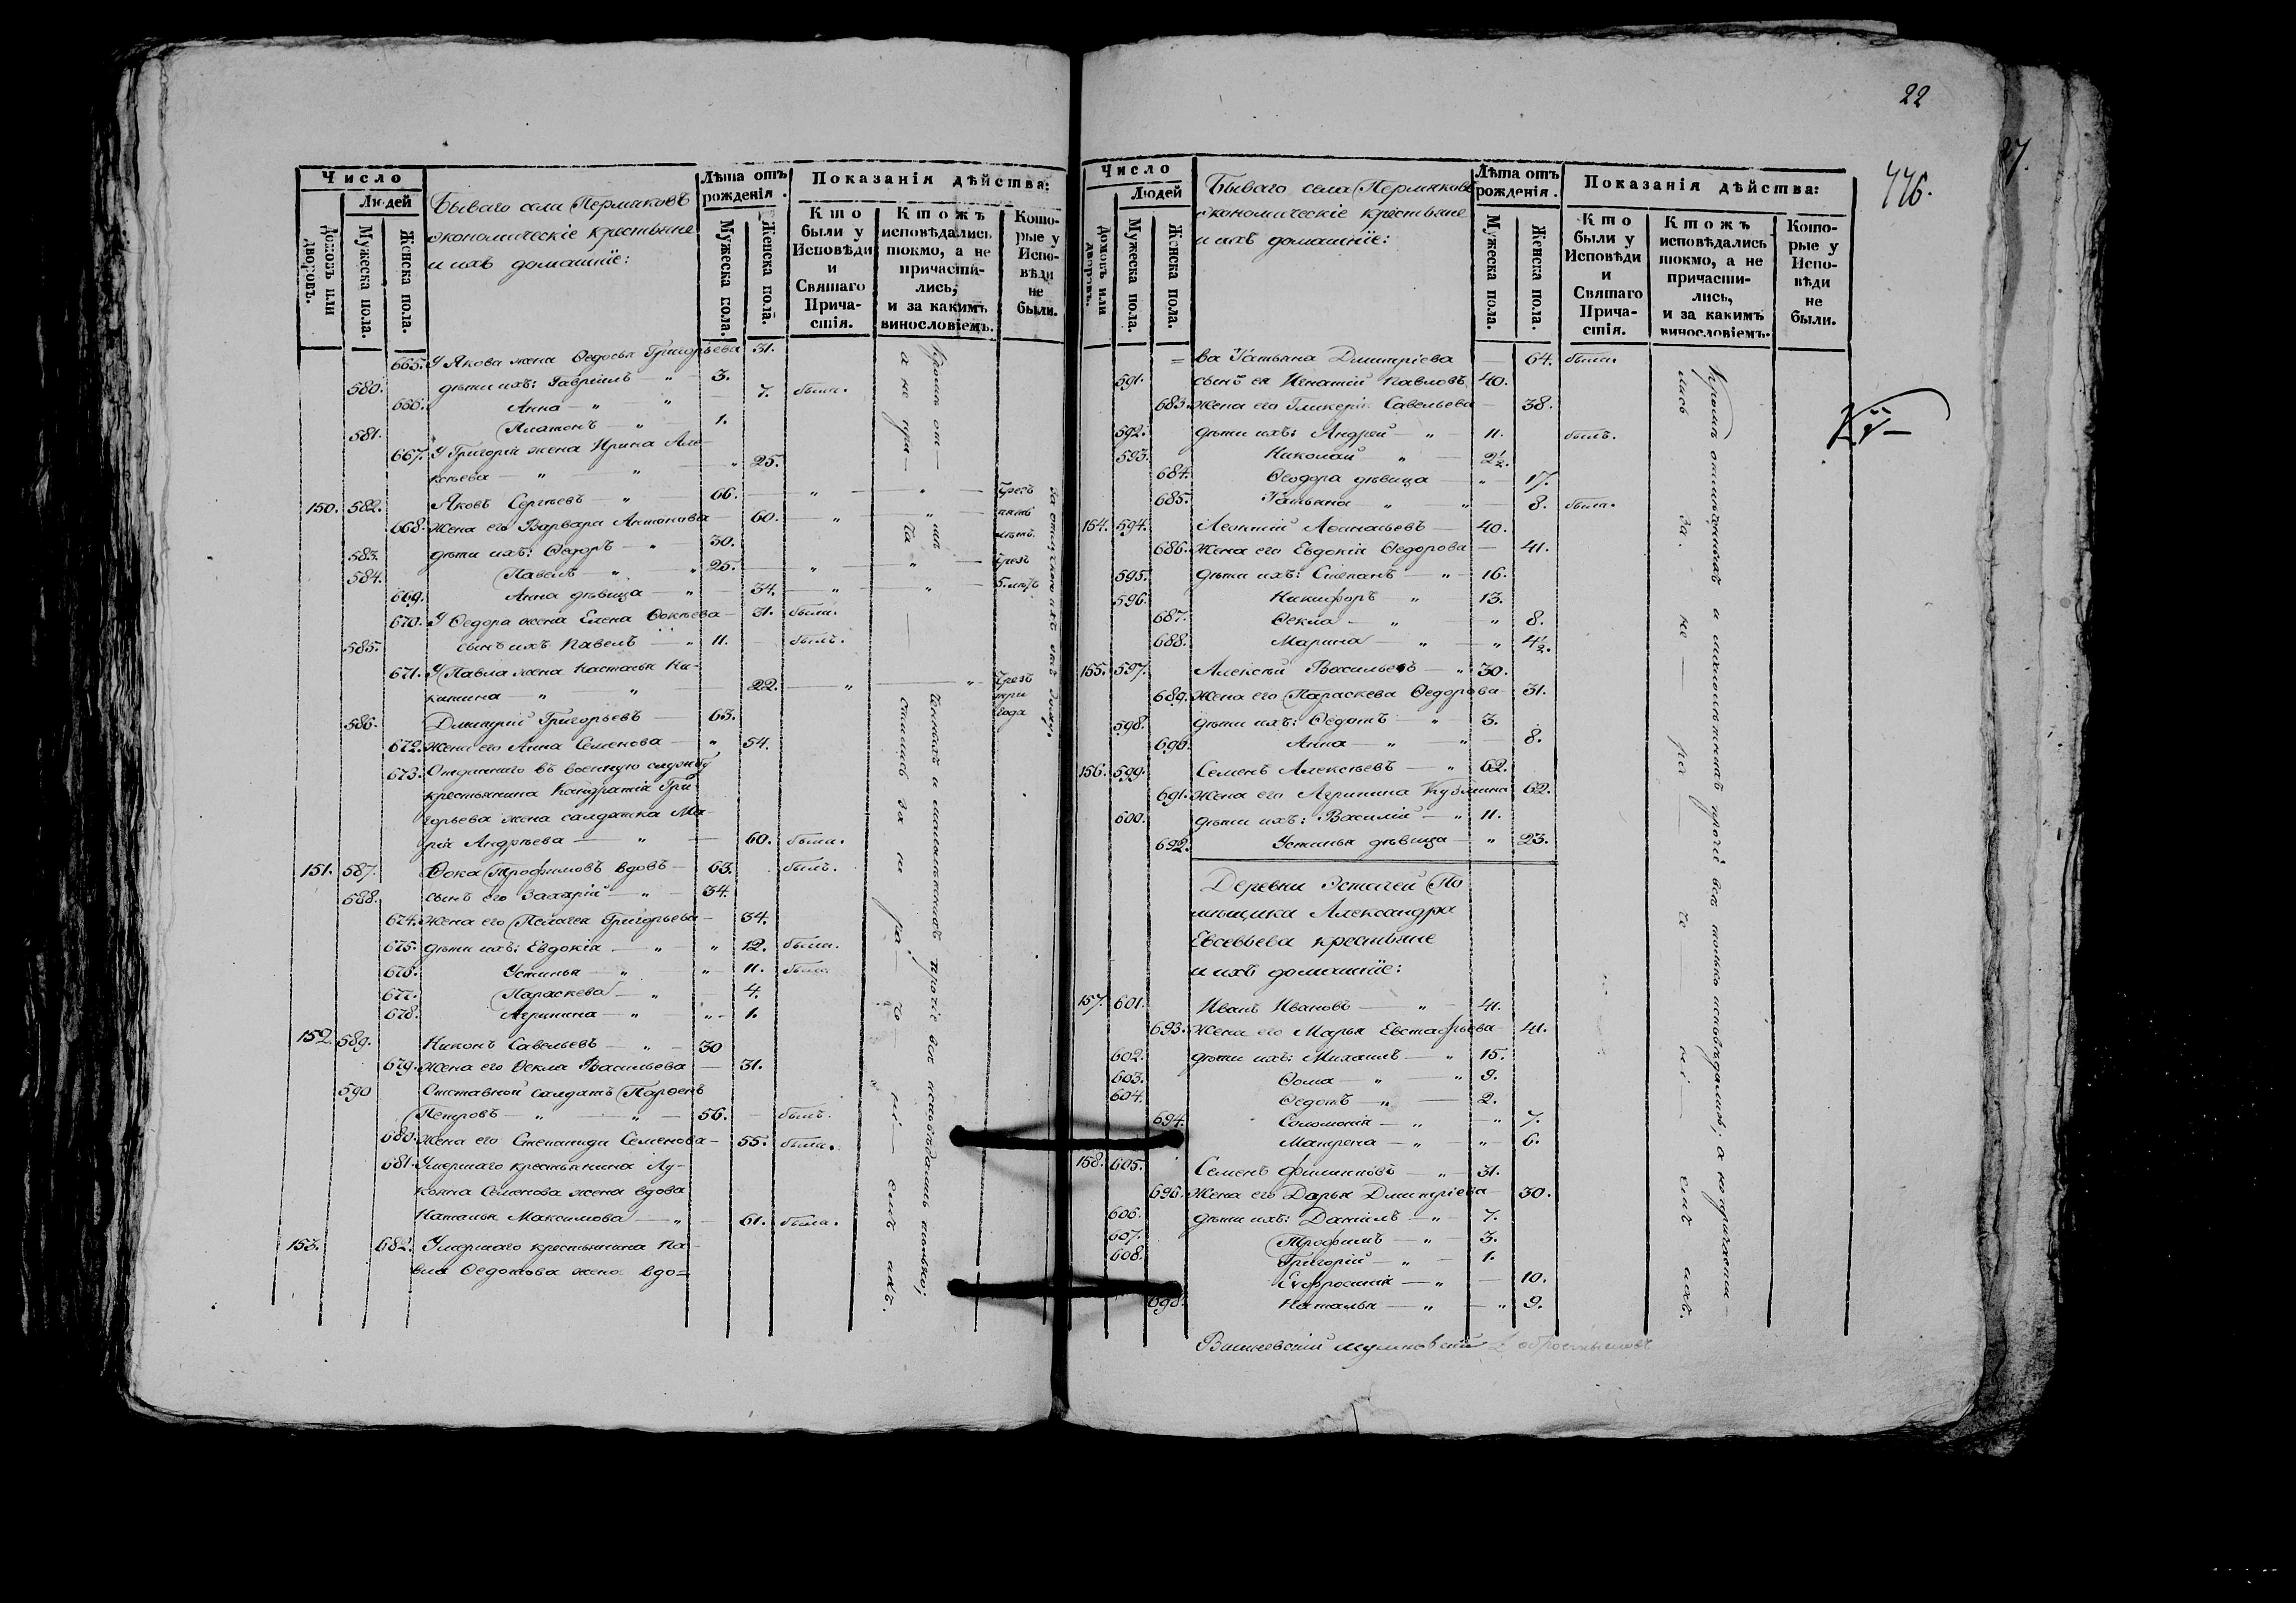 22
27.
776.
Число
Людей
Домовъ или дворовъ.
Мужеска пола.
Женска пола.
Бываго села Пермяковъ
экономическіе крестьяне
и ихъ домашніе:
Лѣта отъ рожденія.
Мужеска пола.
Женска пола.
Показанія дѣйства:
Кто были у Исповѣди и Святаго Причастія.
Ктожъ исповѣдались токмо, а не причастились, и за какимъ винословіемъ.
Которые у Исповѣди не были.
665. У Якова жена Ѳедосья Григорьева 31.
580. дѣти ихъ: Гавріилъ — " — 3.
666. Анна — " — " — 7. была.
581. Платонъ — " — 1.
667. У Григорія жена Ирина Але-
ксѣева — " — " — " 25.
150. 582. Яковъ Сергѣевъ — " 66. — " — " — Чрезъ
668. Жена его Варвара Антонова — 60. — " — " — пять
583. дѣти ихъ: Ѳедоръ — " — 30. лѣтъ.
584. Павелъ " " 25. — " — " — Чрезъ
669. Анна дѣвица — " — 34. — " — " 5. лѣтъ
670. У Ѳедора жена Елена Ѳокѣева — 31. была.
585. сынъ ихъ Павелъ — " 11. — былъ.
671. У Павла жена Настасья Ни-
китина — " " — 22. — " — " Чрезъ
три
года
586. Дмитрій Григорьевъ — 63.
672. Жена его Анна Семенова — " 54.
673. Отданнаго въ военную службу
крестьянина Кондратія Гри-
горьева жена солдатка Ма-
рія Андрѣева — " — 60. была.
151. 587. Ѳока Трофимовъ вдовъ — 63. былъ.
588. сынъ его Захарій — " — 34.
674. Жена его Пелагея Григорьева — 34.
675. дѣти ихъ: Евдокія — " — " 12. была.
676. Устинья — " " — 11. была
677. Параскева — " — 4.
678. Агрипина — " " — 1.
152. 589. Никонъ Савельевъ — " — 30
679. Жена его Ѳекла Васильева — 31.
590 Отставной солдатъ Парѳенъ
Петровъ — " — " — 56. — былъ.
680. Жена его Степанида Семенова — 55. была.
681. Умершаго крестьянина Лу-
кояна Семенова жена вдова
Наталья Максимова — " — 61. была.
153. 682. Умершаго крестьянина Па-
вла Ѳедотова жена вдо=
Кромѣ отмѣченныхъ и малолѣтнихъ прочіе всѣ исповѣдались только;
а не причастились за не раченіемъ ихъ.
за отлучкою ихъ отъ дому.
Число
Людей
Домовъ или дворовъ.
Мужеска пола.
Женска пола.
Бываго села Пермяковъ
экономическіе крестьяне
и ихъ домашніе:
Лѣта отъ рожденія.
Мужеска пола.
Женска пола.
Показанія дѣйства:
Кто были у Исповѣди и Святаго Причастія.
Ктожъ исповѣдались токмо, а не причастились, и за какимъ винословіемъ.
Которые у Исповѣди не были.
= ва Татьяна Дмитріева — 64. была.
591. сынъ ея Игнатій Павловъ 40.
683. Жена его Гликерія Савельева — 38.
592. дѣти ихъ: Андрей — " — 11. былъ.
593. Николай " — 2½.
684. Ѳеодора дѣвица — " — 17.
685. Татьяна " " — 8. была.
154. 594. Леонтій Аѳанасьевъ — 40.
686. Жена его Евдокія Ѳедорова — 41.
595. дѣти ихъ: Степанъ — " — 16.
596. Никифоръ — " 13.
687. Ѳекла — " — " 8.
688. Марина — " — " 4½.
155. 597. Алексѣй Васильевъ — " 30.
689. Жена его Параскева Ѳедорова — 31.
598. дѣти ихъ: Ѳедотъ — " — 3.
690. Анна — " — " — 8.
156. 599. Семенъ Алексѣевъ — " 62.
691. Жена его Агрипина Кузмина 62.
600. дѣти ихъ: Василій — " 11.
692. Устинья дѣвица — " 23.
Деревни Эсталей По-
мѣщика Александра
Евсевьева крестьяне
и ихъ домашніе:
157. 601. Иванъ Ивановъ — " — 41.
693. Жена его Марья Евстафьева — 41.
602. дѣти ихъ: Михаилъ — " 15.
603. Ѳома — " — " 9.
604. Ѳедотъ — " — 2.
694. Соломонія — " — " 7.
Матрена — " — " — 6.
158. 605. Семенъ Филиповъ — " — 31.
696. Жена его Дарья Дмитріева — 30.
606. дѣти ихъ: Даніилъ — " — 7.
607. Трофимъ — " — 3.
608. Григорій — " — 1.
Евфросинія — " — 10.
698. Наталья — " — " 9.
Кромѣ отмѣченныхъ и малолѣтнихъ прочіе всѣ только исповѣдались; а не причасти-
лись за не раченіемъ ихъ.